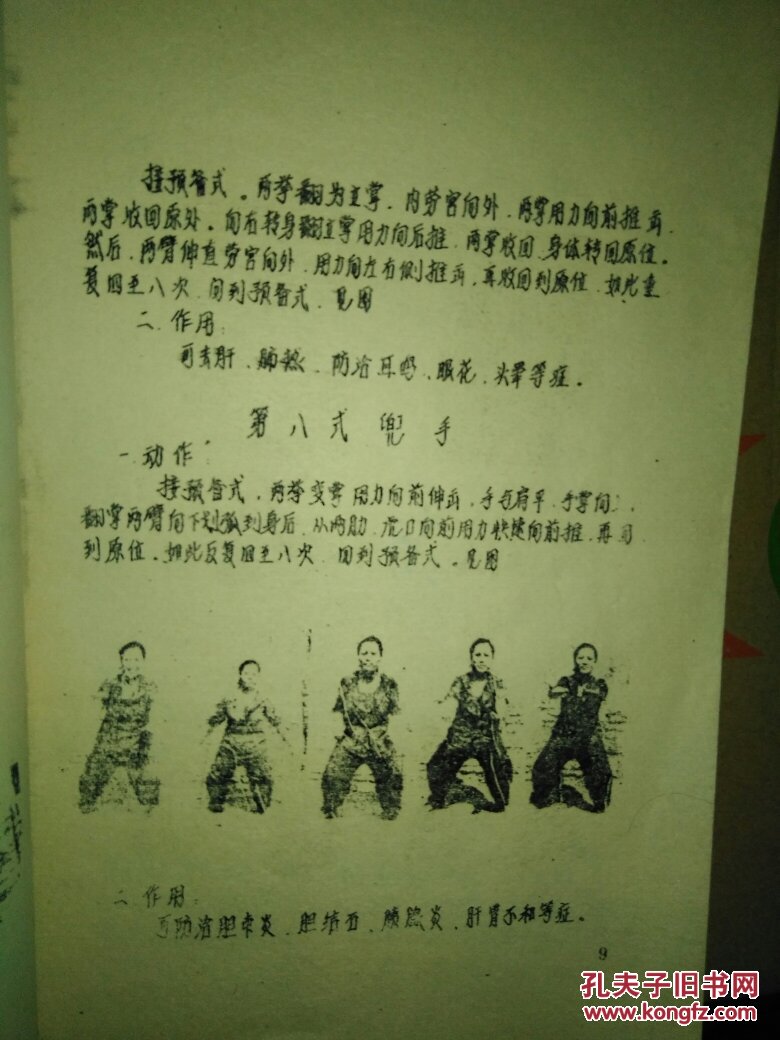 接预备式。两拳翻为立掌，内劳宫向外，两掌用力向前推出，
两掌收回原处。向右转身翻立掌用力向后推，两掌收回，身体转回原位。
然后，两臂伸直劳宫向外，用力向左右侧推出，再收回到原位，如此重
复四至八次，回到预备式，见图
二、作用：
可去肝、肺热、防治耳鸣、眼花、头晕等症。
第八式 兜手
一、动作：
接预备式，两拳变掌用力向前伸出，手与肩平，手掌向
翻掌两臂向下划弧到身后，从两肋，虎口向前用力快速向前推，再回
到原位。如此反复四至八次，回到预备式。见图
二、作用：
可防治胆囊炎、胆结石、胰腺炎、肝胃不和等症。
9
孔夫子旧书网
www.kongfz.com